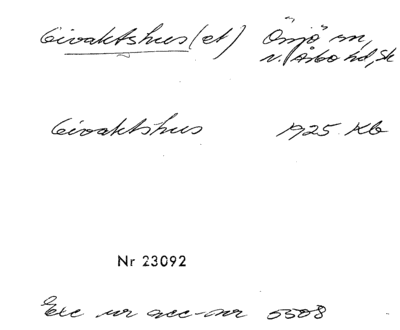 Givaktshus(et) Össjö sn,
N. Åsbo hd, Sk
Givaktshus 1925. Kb
Nr 23092
Exc ur acc-nr 5508